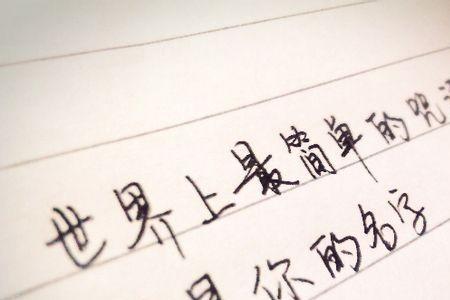 世界上最简单的咒
是你的名字